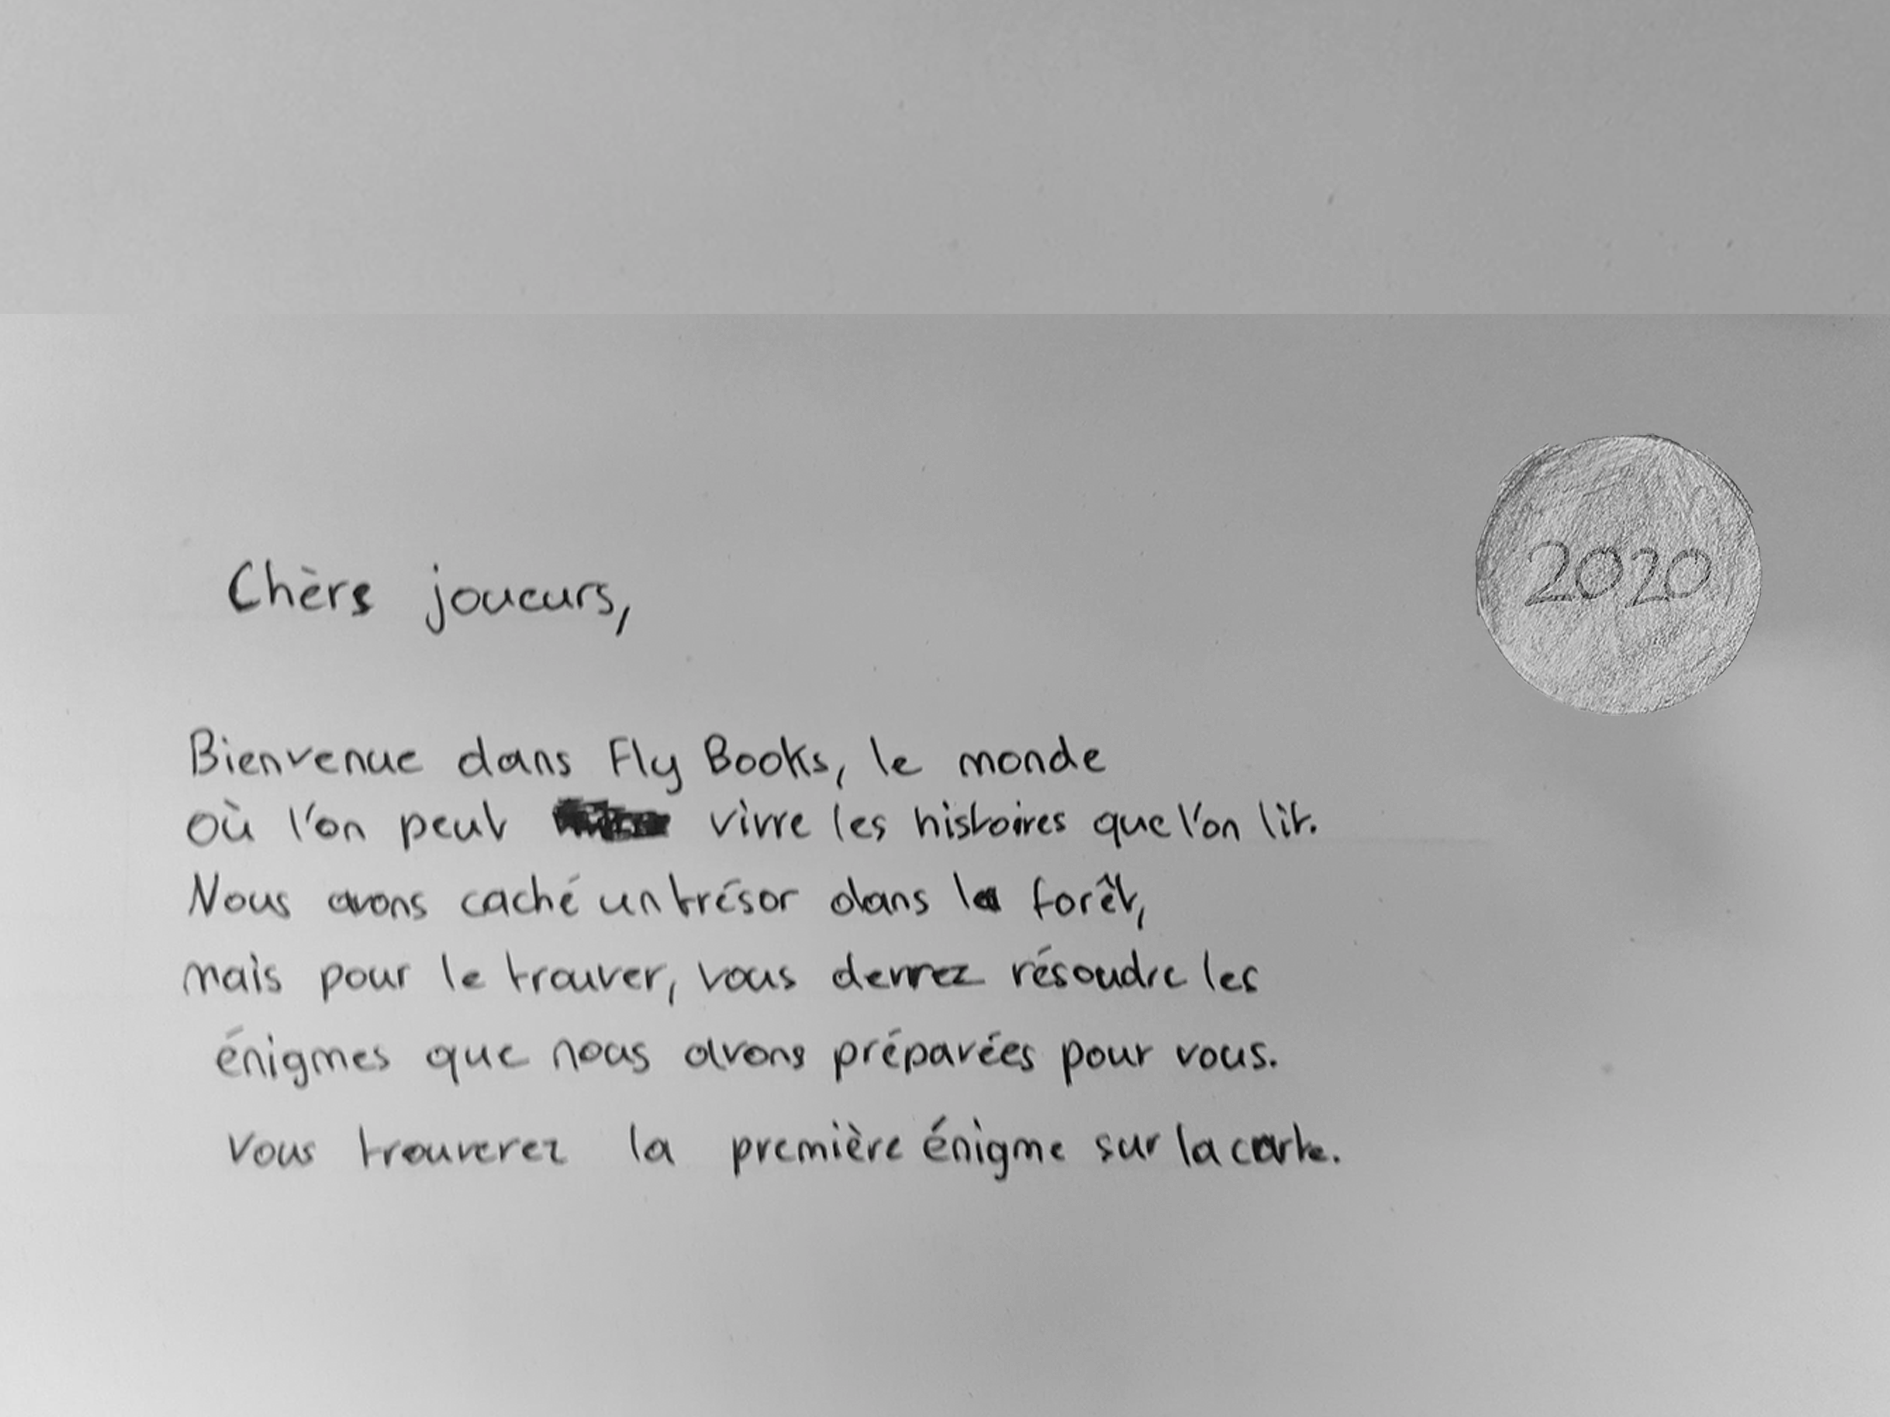 2020
Chèrs joueurs,
Bienvenue dans Fly Books, le monde
où l'on peut vivre les histoires que l'on lit.
Nous avons caché un trésor dans la forêt,
mais pour le trouver, vous devrez résoudre les
énigmes que nous avons préparées pour vous.
Vous trouverez la première énigme sur la carte.